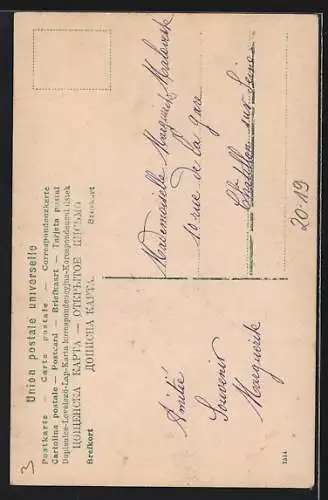 Union postale universelle
Postkarte — Carte postale — Correspondenzkarte
Cartolina postale — Postcard — Briefkaart — Tarjeta postal
Dopisnica-Levelező-Lap-Karta korespondencyjna-Korespondencni listek
ЦОЩЕНСКА КАРТА — ОТКРЫТОЕ ПИСЬМО
Brefkort ДОПИСНА КАРТА. Brevkort
Mademoiselle Marguerite
10 rue de la gare
Châtillon sur Seine
20-19
Amitié
Souvenir
Marguerite
3